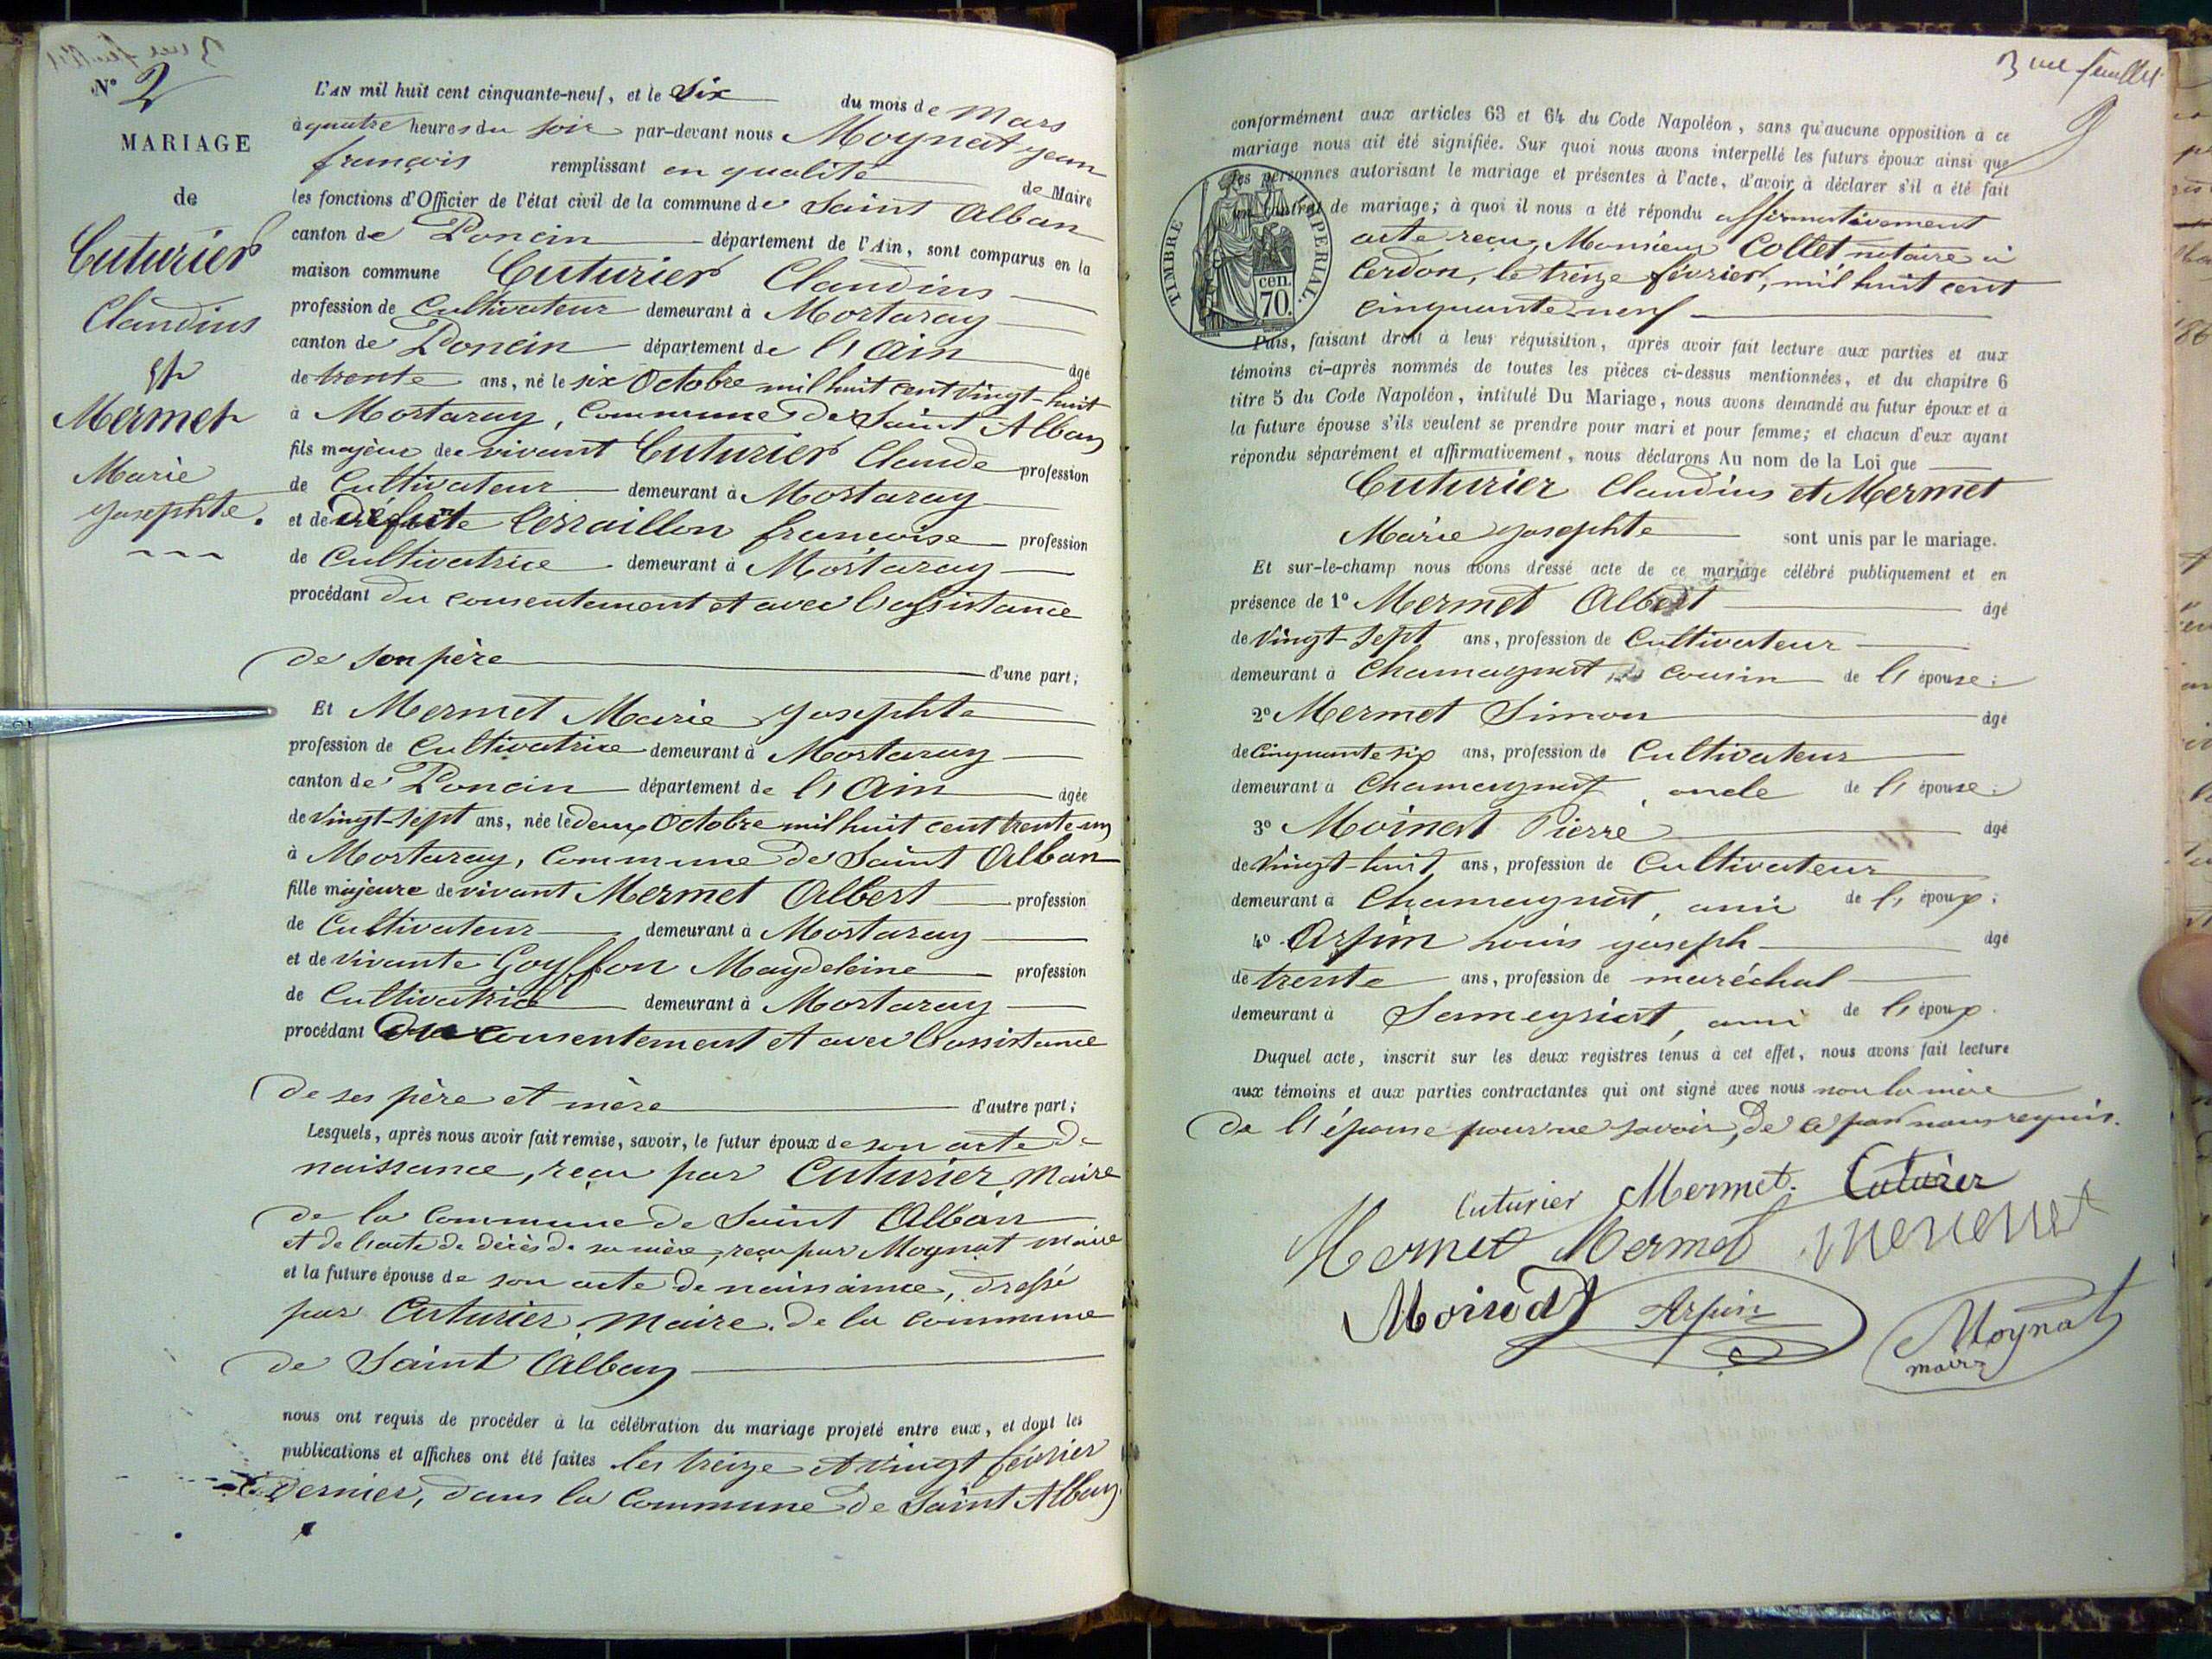 N° 2
MARIAGE
de
Cuturier
Claudius
et
Mermet
Marie
Josephte.
L'AN mil huit cent cinquante-neuf, et le Six du mois de Mars
à quatre heures du soir par-devant nous Moynat Jean
françois remplissant en qualité de Maire
les fonctions d'Officier de l'état civil de la commune de Saint Alban
canton de Poncin département de l'Ain, sont comparus en la
maison commune Cuturier Claudius
profession de Cultivateur demeurant à Mortaray
canton de Poncin département de l'Ain âgé
de trente ans, né le six Octobre mil huit cent vingt-huit
à Mortaray, Commune de Saint Alban
fils majeur de vivant Cuturier Claude profession
de Cultivateur demeurant à Mortaray
et de défunte Cerraillon francoise profession
de Cultivatrice demeurant à Mortaray
procédant du consentement et avec l'assistance
de son père d'une part;
Et Mermet Marie Josephte
profession de Cultivatrice demeurant à Mortaray
canton de Poncin département de l'Ain âgée
de vingt-sept ans, née le deux Octobre mil huit cent trente-un
à Mortaray, Commune de Saint Alban
fille majeure de vivant Mermet Albert profession
de Cultivateur demeurant à Mortaray
et de vivante Goyffon Maydeleine profession
de Cultivatrice demeurant à Mortaray
procédant du consentement et avec l'assistance
de ses père et mère d'autre part;
Lesquels, après nous avoir fait remise, savoir, le futur époux de son acte de
naissance, reçu par Cuturier, Maire
de la Commune de Saint Alban
et de l'acte de décès de sa mère, reçu par Moynat maire
et la future épouse de son acte de naissance, dressé
par Cuturier, Maire, de la commune
de Saint Alban
nous ont requis de procéder à la célébration du mariage projeté entre eux, et dont les
publications et affiches ont été faites les treize et vingt février
dernier, dans la Commune de Saint Alban
3me feuillet
conformément aux articles 63 et 64 du Code Napoléon, sans qu'aucune opposition à ce
mariage nous ait été signifiée. Sur quoi nous avons interpellé les futurs époux ainsi que
les personnes autorisant le mariage et présentes à l'acte, d'avoir à déclarer s'il a été fait
un contrat de mariage; à quoi il nous a été répondu affirmativement
TIMBRE IMPERIAL.
cen.
70.
acte reçu, Monsieur Collet notaire à
Cerdon, le treize février, mil huit cent
cinquante-neuf
Puis, faisant droit à leur réquisition, après avoir fait lecture aux parties et aux
témoins ci-après nommés de toutes les pièces ci-dessus mentionnées, et du chapitre 6
titre 5 du Code Napoléon, intitulé Du Mariage, nous avons demandé au futur époux et à
la future épouse s'ils veulent se prendre pour mari et pour femme; et chacun d'eux ayant
répondu séparément et affirmativement, nous déclarons Au nom de la Loi que
Cuturier Claudius et Mermet
Marie Josephte sont unis par le mariage.
Et sur-le-champ nous avons dressé acte de ce mariage célébré publiquement et en
présence de 1° Mermet Albert âgé
de vingt-sept ans, profession de Cultivateur
demeurant à Chamagnat cousin de l'épouse;
2° Mermet Simon âgé
de Cinquante six ans, profession de Cultivateur
demeurant à Chamagnat, oncle de l'épouse;
3° Moinat Pierre âgé
de vingt-huit ans, profession de Cultivateur
demeurant à Chamagnat, ami de l'époux;
4° Arpin Louis Joseph âgé
de trente ans, profession de maréchal
demeurant à Sameysiat, ami de l'époux.
Duquel acte, inscrit sur les deux registres tenus à cet effet, nous avons fait lecture
aux témoins et aux parties contractantes qui ont signé avec nous non la mère
de l'épouse pour ne savoir, de ce par nous requis.
Cuturier Mermet. Cuturier
Mermet Mermet Mermet
Moinat Arpin
Moynat
maire